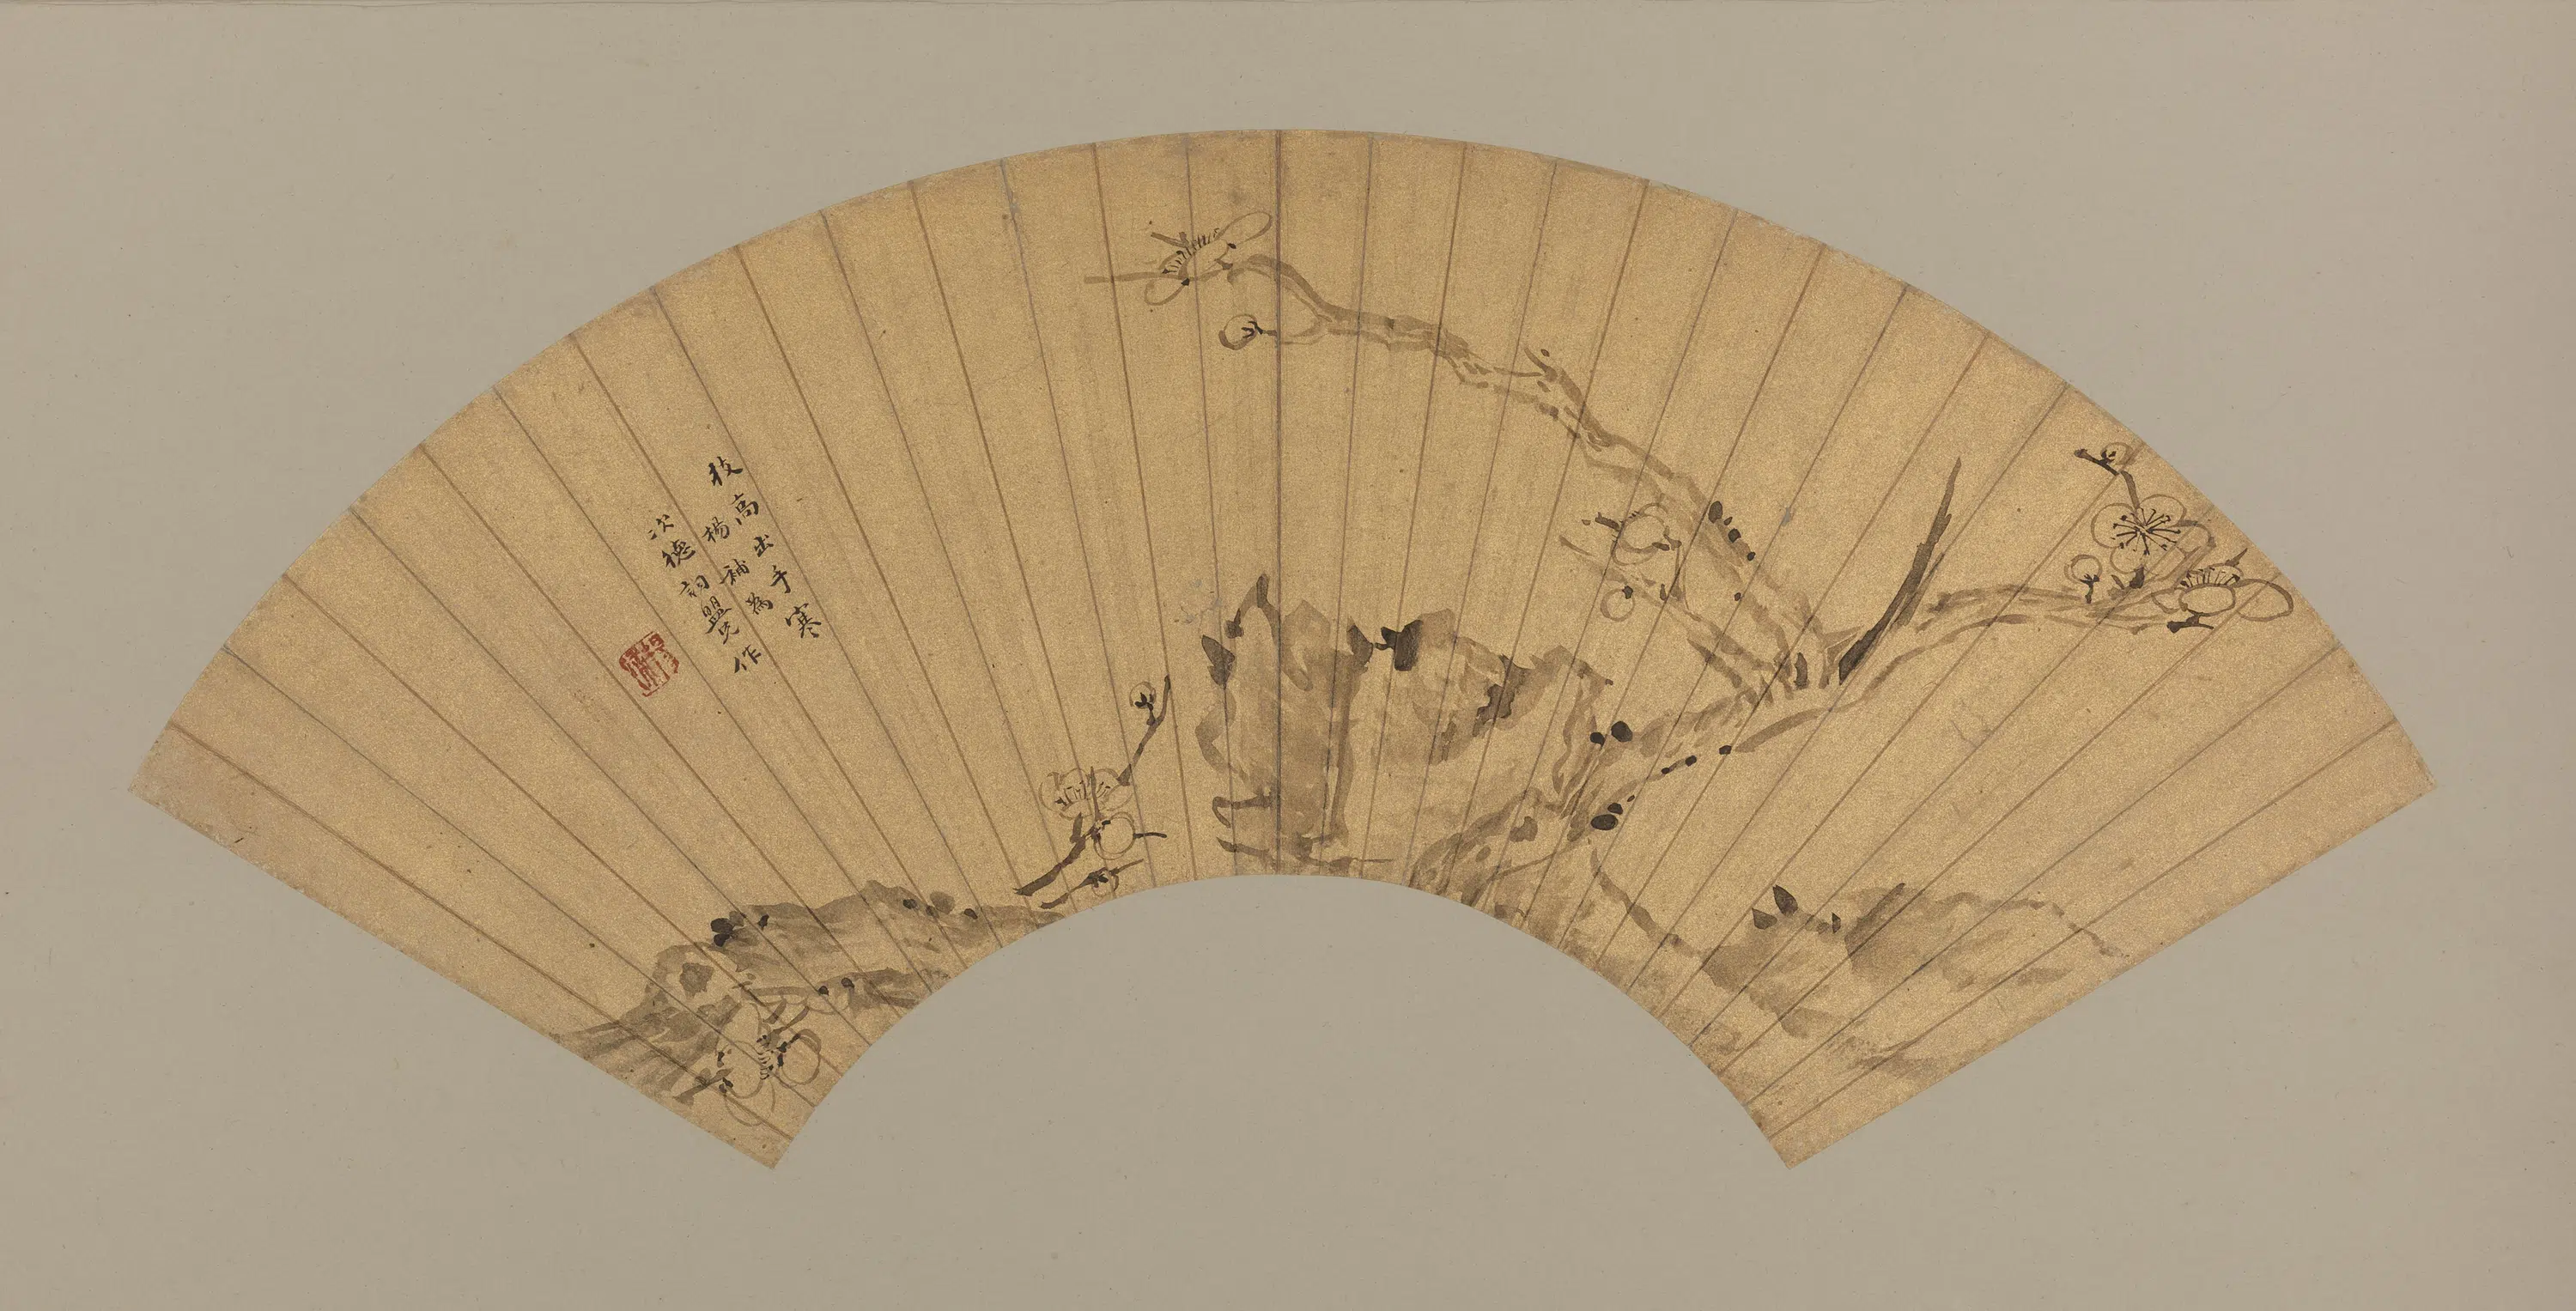 枝高出手寒
楊補為
次德詞盟兄作